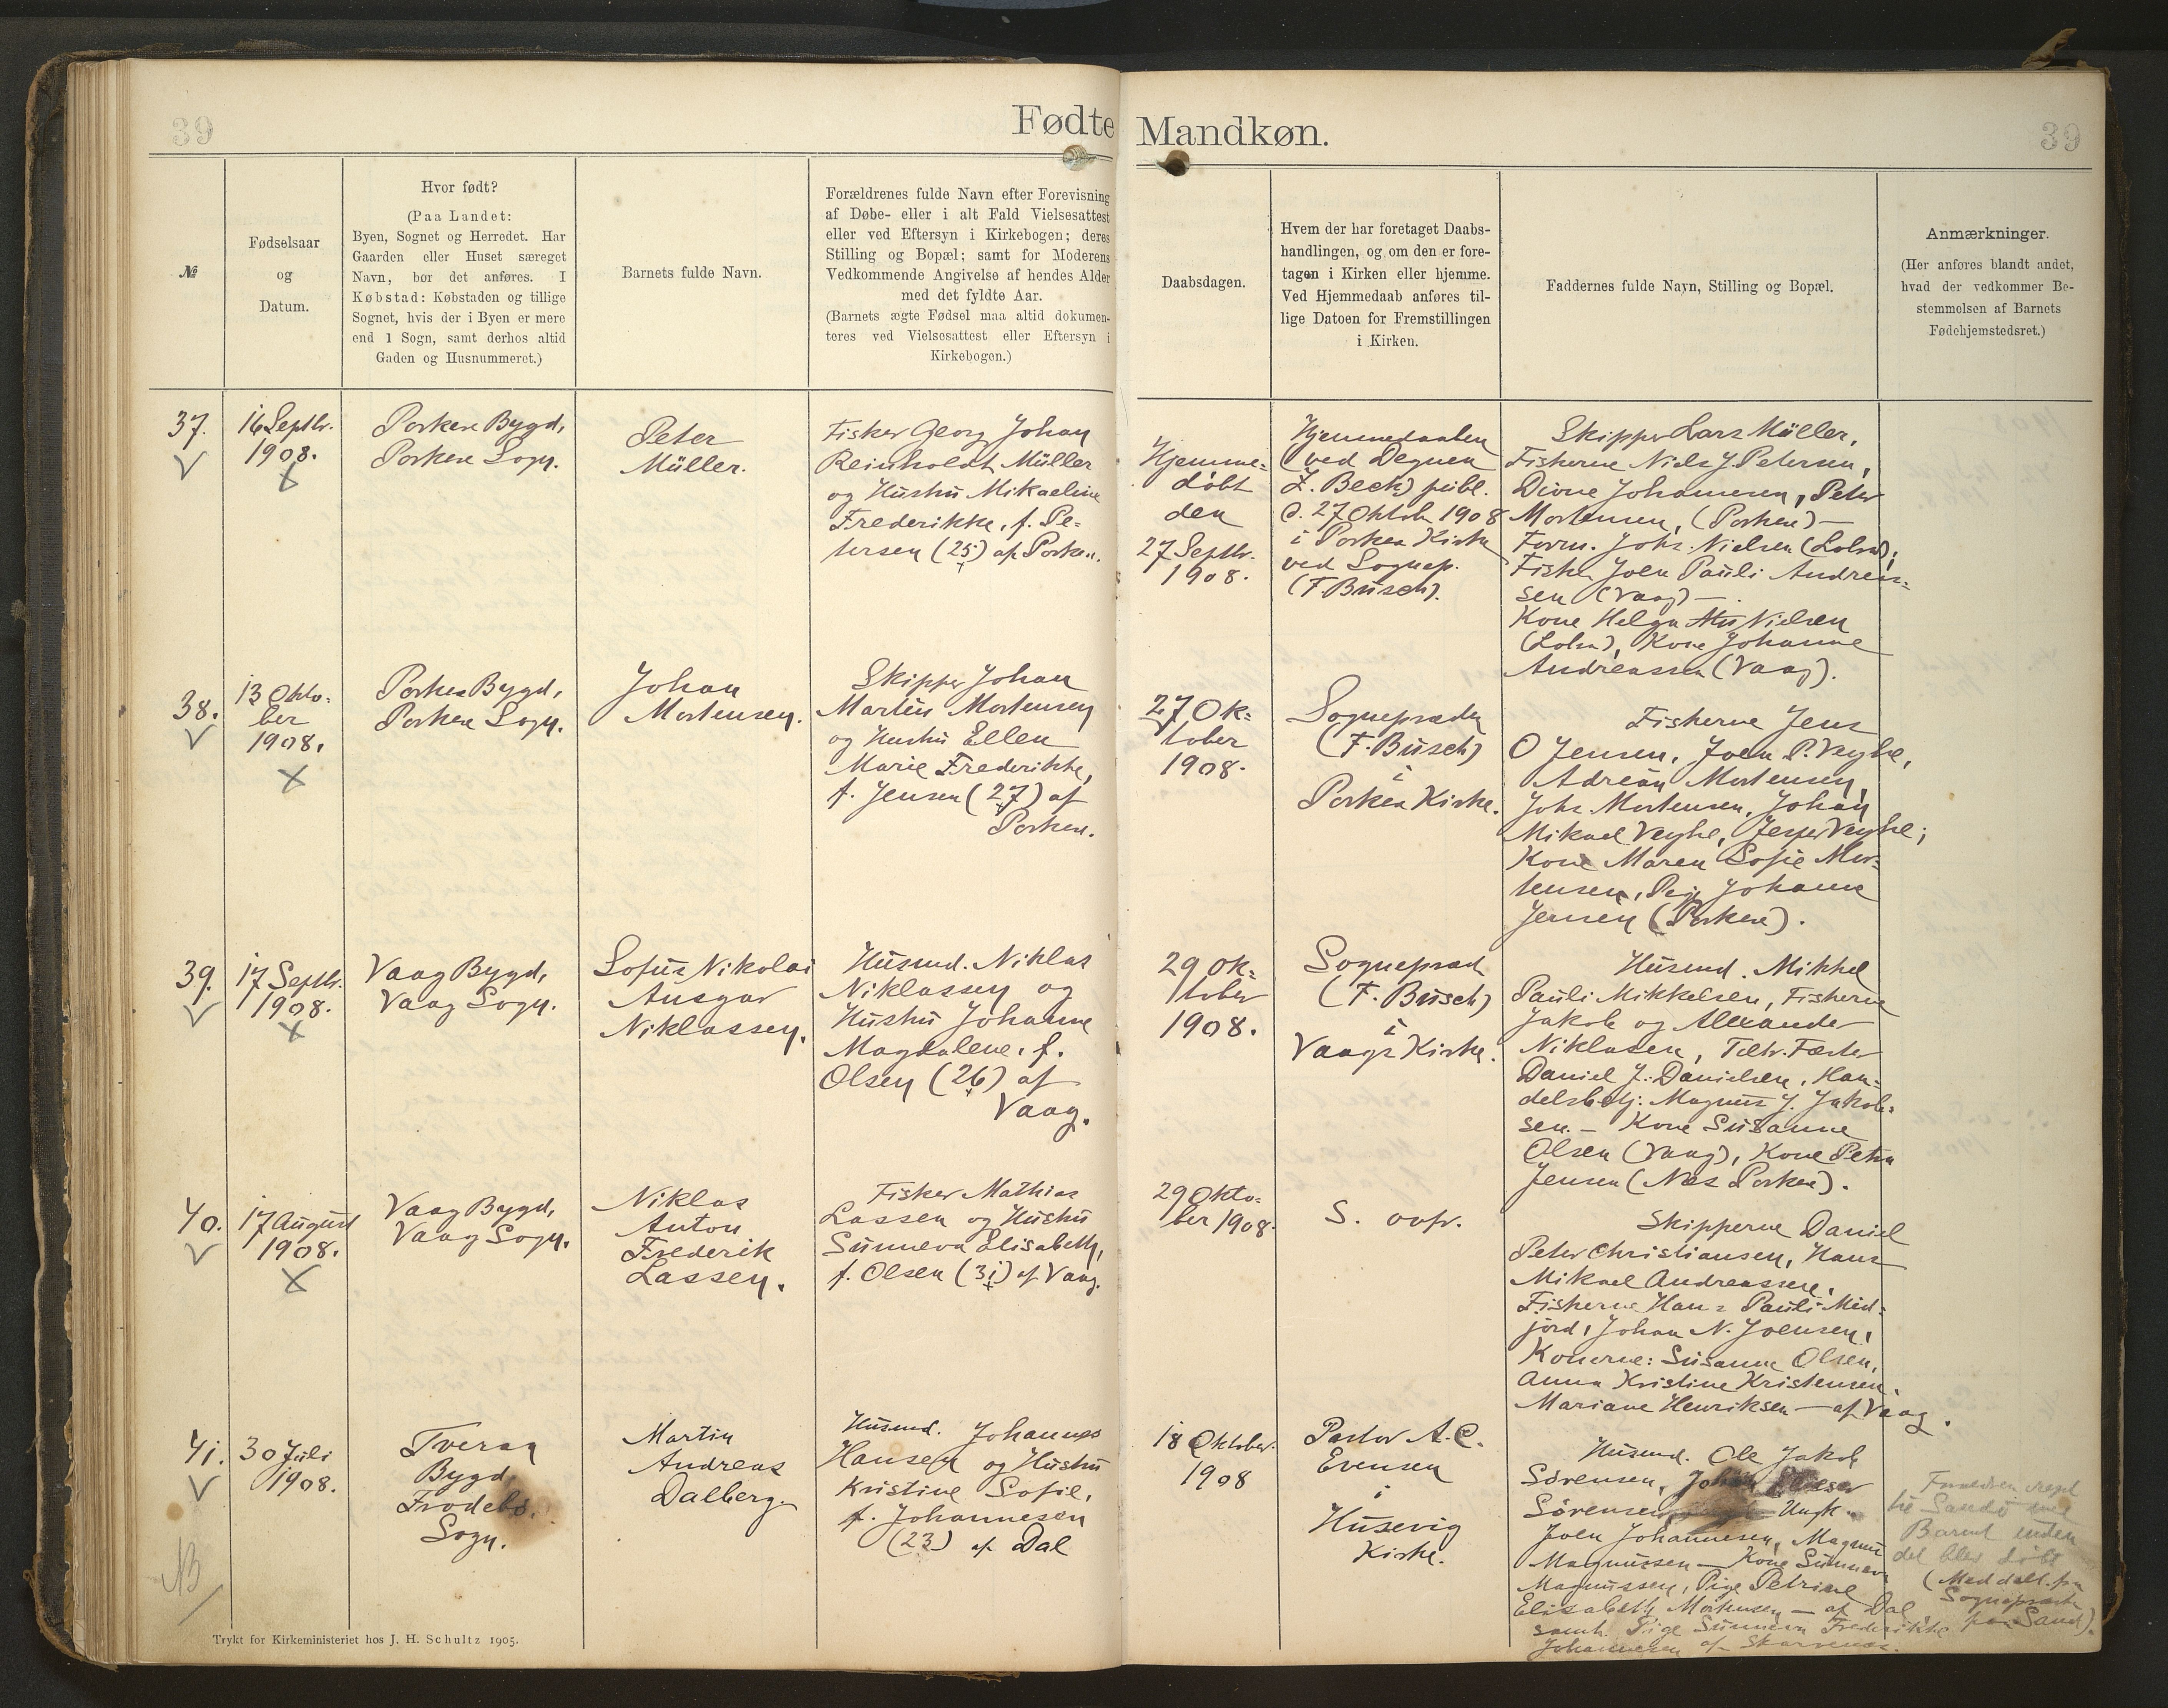 39
Fødte Mandkøn.
39
№
Fødselsaar
og
Datum.
Hvor født?
(Paa Landet:
Byen, Sognet og Herredet. Har
Gaarden eller Huset særeget
Navn, bør det anføres. I
Købstad: Købstaden og tillige
Sognet, hvis der i Byen er mere
end 1 Sogn, samt derhos altid
Gaden og Husnummeret.)
Barnets fulde Navn.
Forældrenes fulde Navn efter Forevisning
af Døbe- eller i alt Fald Vielsesattest
eller ved Eftersyn i Kirkebogen; deres
Stilling og Bopæl; samt for Moderens
Vedkommende Angivelse af hendes Alder
med det fyldte Aar.
(Barnets ægte Fødsel maa altid dokumen-
teres ved Vielsesattest eller Eftersyn i
Kirkebogen.)
Daabsdagen.
Hvem der har foretaget Daabs-
handlingen, og om den er fore-
tagen i Kirken eller hjemme.
Ved Hjemmedaab anføres til-
lige Datoen for Fremstillingen
i Kirken.
Faddernes fulde Navn, Stilling og Bopæl.
Anmærkninger.
(Her anføres blandt andet,
hvad der vedkommer Be-
stemmelsen af Barnets
Fødehjemstedsret.)
37.
16 Septbr.
1908.
Porkere Bygd,
Porkere Sogn.
Peter
Müller.
Fisker Georg Johan
Reinholdt Müller
og Hustru Mikaeline
Frederikke, f. Pe=
tersen (25) af Porkere.
Hjemme=
døbt
den
27 Septbr.
1908.
Hjemmedaaben
(ved Degnen
Z. Beck) publ.
d. 27 Oktob. 1908
i Porkere Kirke
ved Sognep.
(F. Busch).
Skipper Lars Müller,
Fiskerne Niels J. Petersen,
Dione Johannesen, Peter
Mortensen, (Porkere) —
Form. Johs. Nielsen (Lobra),
Fisker Joen Pauli Andreas=
sen (Vaag) —.
Kone Helga Nielsen
(Lobra), Kone Johanne
Andreassen (Vaag).
38.
13 Okto=
ber
1908.
Porkere Bygd,
Porkere Sogn.
Johan
Mortensen.
Skipper Johan
Martin Mortensen
og Hustru Ellen
Marie Frederikke,
f. Jensen (27) af
Porkere.
27 Ok=
tober
1908.
Sognepræsten
(F. Busch)
i
Porkere Kirke.
Fiskerne Jens
O Jensen, Joen P. Veyhe,
Adrian Mortensen,
Johs Mortensen, Johan
Mikael Veyhe, Jesper Veyhe;
Kone Maren Sofie Mor=
tensen, Pige Johanne
Jensen (Porkere).
39.
17 Septbr.
1908.
Vaag Bygd,
Vaag Sogn.
Sofus Nikolai
Ansgar
Niklassen.
Husmd. Niklas
Niklassen og
Hustru Johanne
Magdalene, f.
Olsen (26) af
Vaag.
29 Ok=
tober
1908.
Sognepræst
(F. Busch)
i
Vaags Kirke.
Husmd. Mikkel
Pauli Mikkelsen, Fiskerne
Jakob og Alexander
Niklasen, Fæster
Daniel J. Danielsen, Han=
delsbetj. Magnus J. Jakob=
sen. — Kone Susanne
Olsen (Vaag), Kone Petra
Jensen (Næs Porkere).
40.
17 August
1908.
Vaag Bygd,
Vaag Sogn.
Niklas
Anton
Frederik
Lassen.
Fisker Mathias
Lassen og Hustru
Sunneva Elisabeth,
f. Olsen (31) af Vaag.
29 Okto=
ber 1908.
S. ovfr.
Skipperne Daniel
Peter Christiansen, Hans
Mikael Andreassen,
Fiskerne Hans Pauli Mid=
jord, Johan N. Joensen,
Konerne: Susanne Olsen,
Anna Kristine Kristensen,
Mariane Henriksen — af Vaag.
41.
30 Juli
1908.
Tveraa
Bygd,
Frodebø
Sogn.
Martin
Andreas
Dalberg.
Husmd. Johannes
Hansen og Hustru
Kristine Sofie,
f. Johannesen
(23) af Dal
18 Oktober
1908
Pastor A. C.
Evensen
i
Husevig
Kirke.
Husmd. Ole Jakob
Sørensen,
Sørensen Ungk.
Joen Johannesen, Magnus
Magnussen — Kone Sunneva
Magnussen, Pige Petrine
Elisabeth Mortensen — af Dal
samt Pige Sunneva Frederikke
Johannesen af Skarvenæs.
Forældrene rejst
til Sandø med
Barnet inden
det blev døbt
(Meddelt fra
Sognepræsten
paa Sand).
NB
Trykt for Kirkeministeriet hos J. H. Schultz 1905.